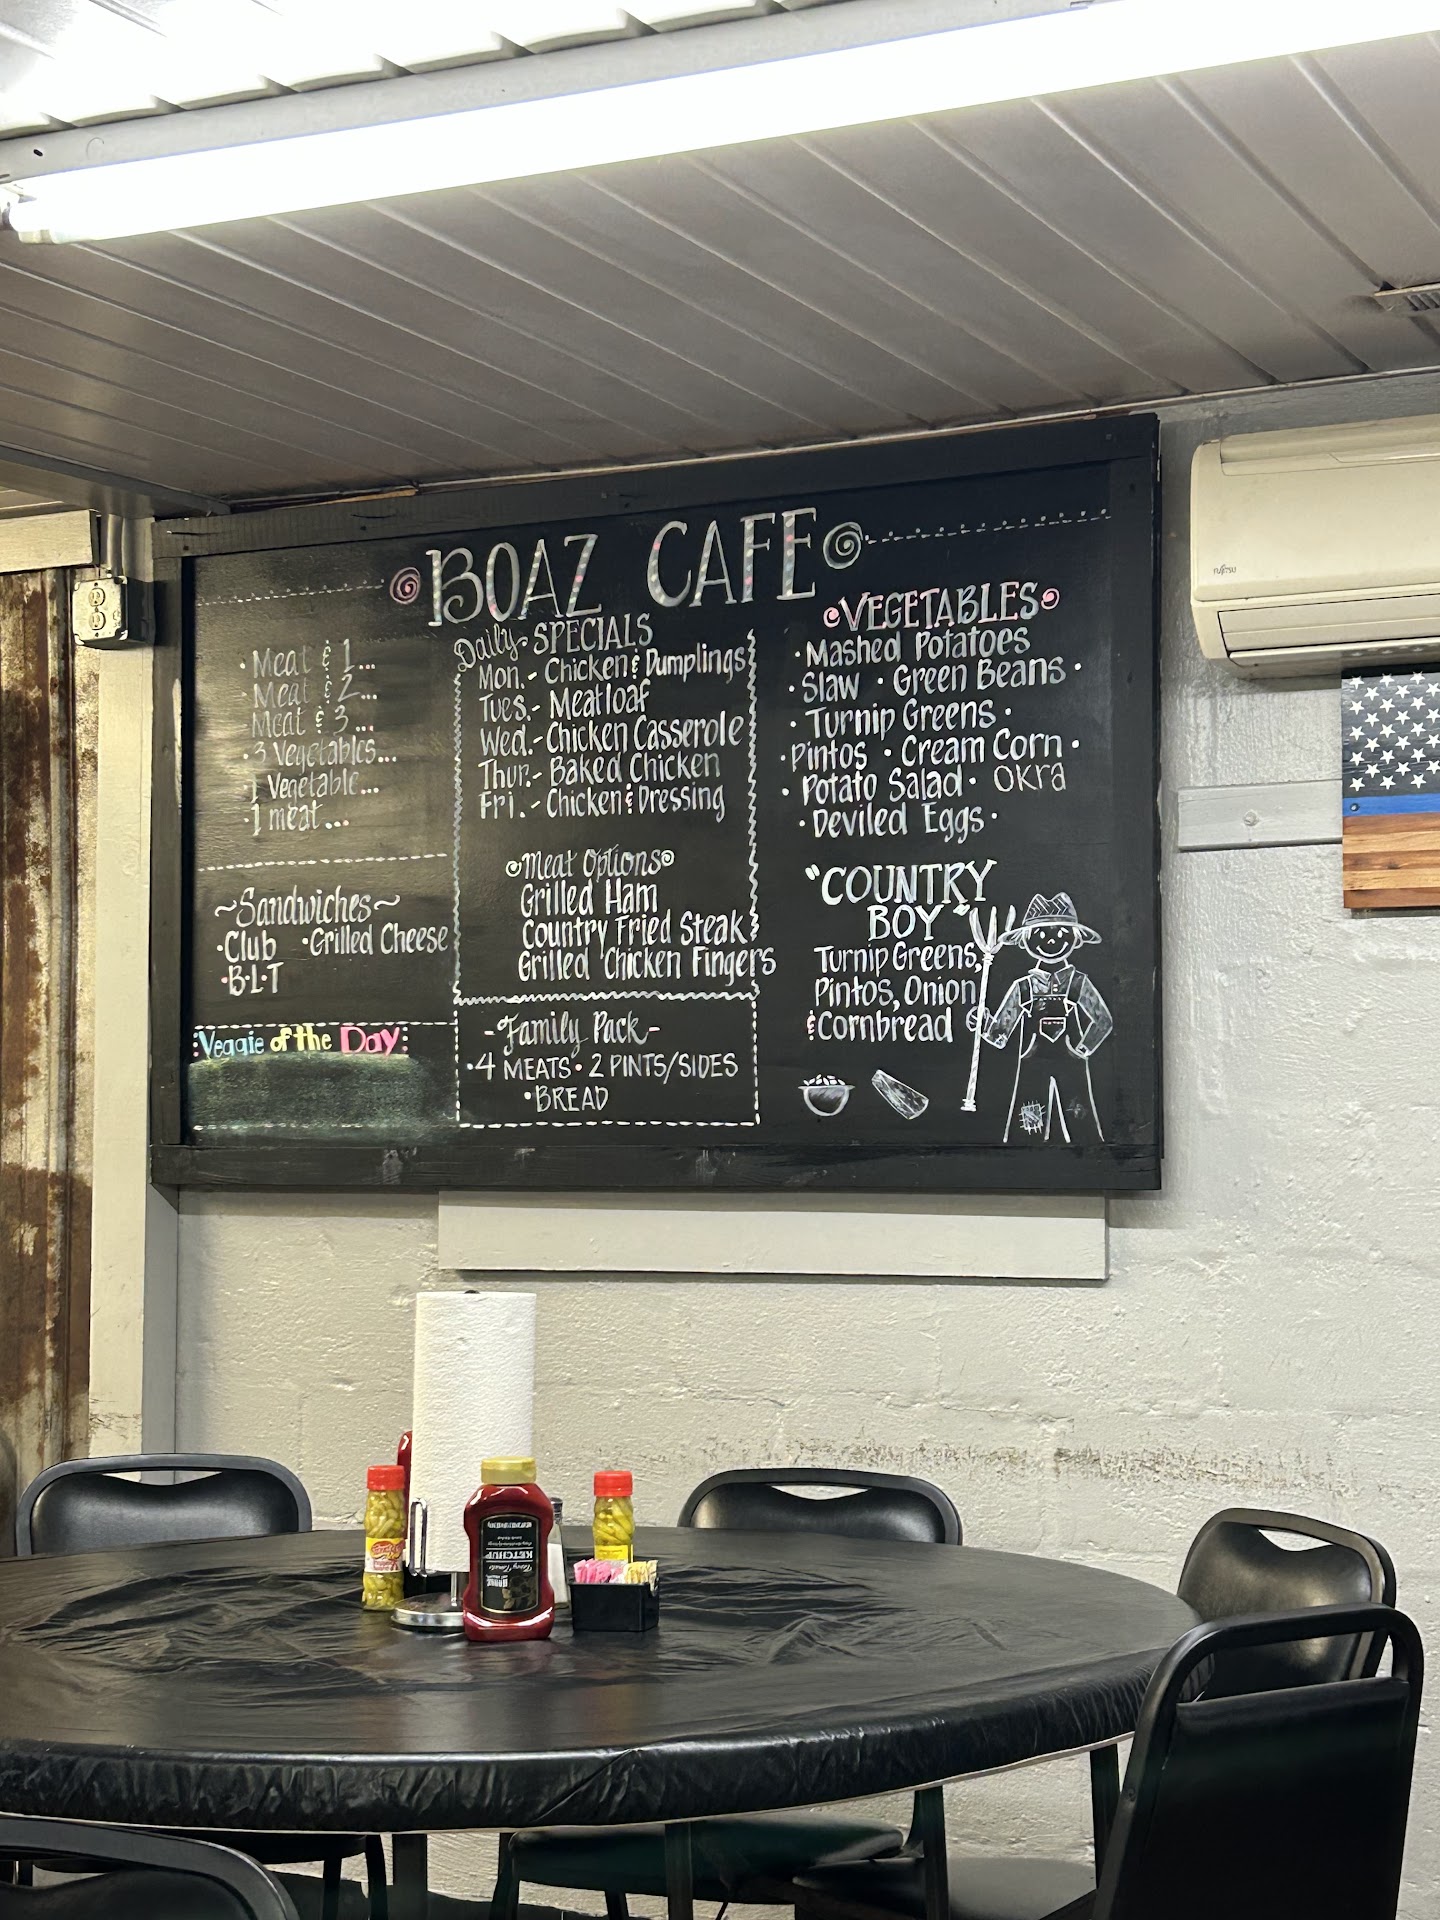 BOAZ CAFE
• Meat & 1...
Meat & 2...
Meat & 3...
• 3 Vegetables...
1 Vegetable...
• 1 meat...
~Sandwiches~
• Club • Grilled Cheese
• B•L•T
Veggie of the Day
Daily SPECIALS
Mon. - Chicken & Dumplings
Tues. - Meatloaf
Wed. - Chicken Casserole
Thur. - Baked Chicken
Fri. - Chicken & Dressing
Meat Options
Grilled Ham
Country Fried Steak
Grilled Chicken Fingers
-Family Pack-
• 4 MEATS • 2 PINTS/SIDES
• BREAD
VEGETABLES
• Mashed Potatoes
• Slaw • Green Beans •
• Turnip Greens •
• Pintos • Cream Corn •
• Potato Salad • Okra
• Deviled Eggs •
"COUNTRY
BOY"
Turnip Greens,
Pintos, Onion
& Cornbread
FUJITSU
KETCHUP